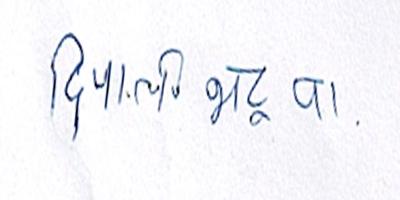 दिपाली भट्ट पा.